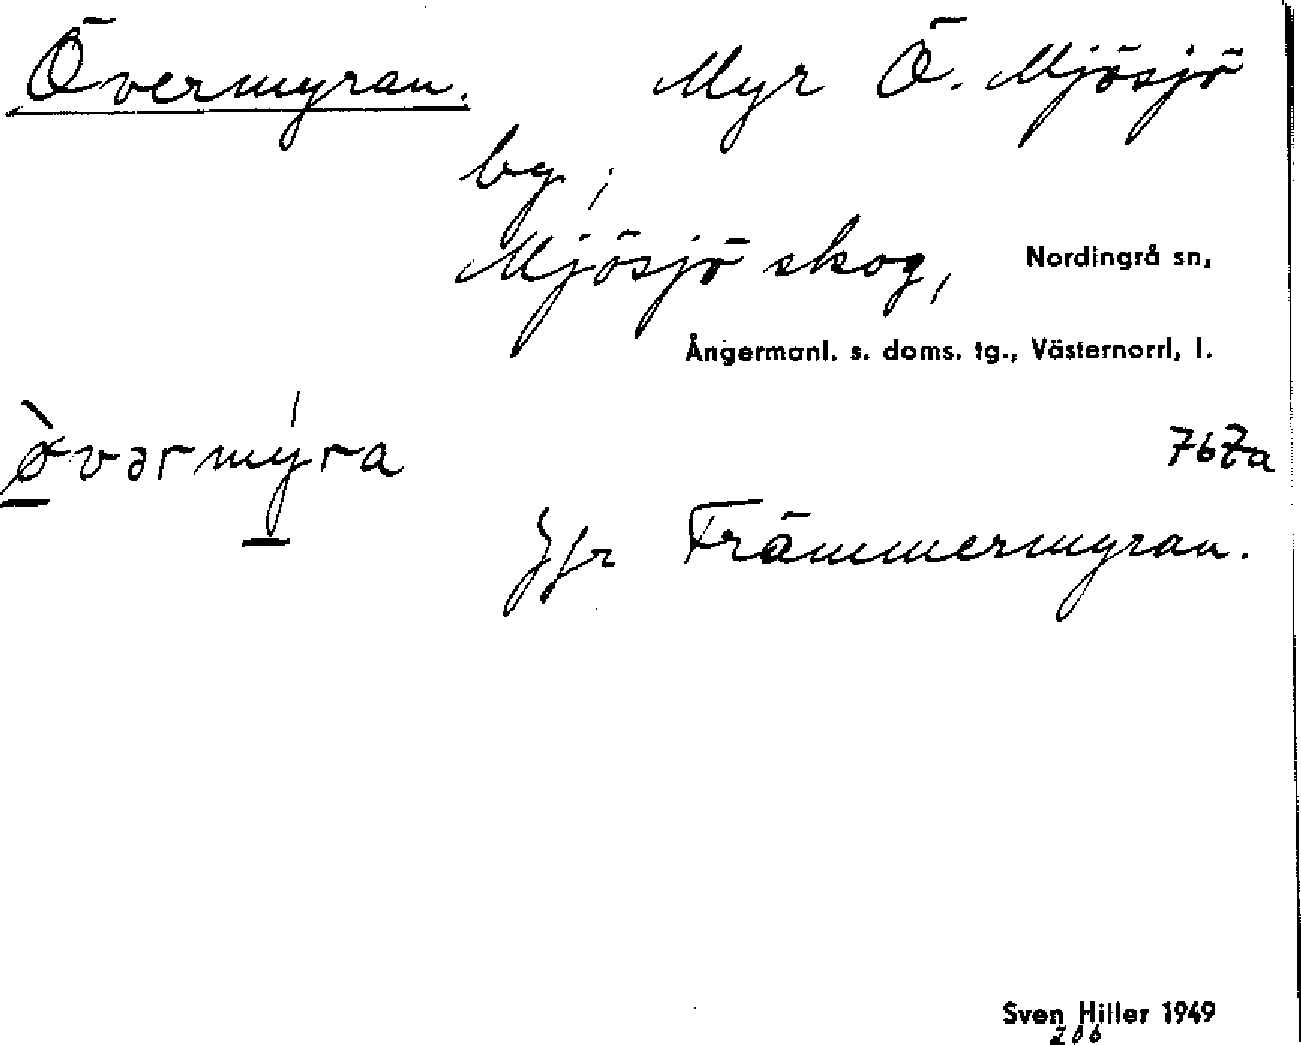 Övermyran. Myr Ö. Mjösjö
by,
Mjösjö skog, Nordingrå sn,
Ångermanl. s. doms. tg., Västernorrl, l.
ø̀vərmýra 76Za
Jfr Främmermyran.
Sven Hiller 1949
206